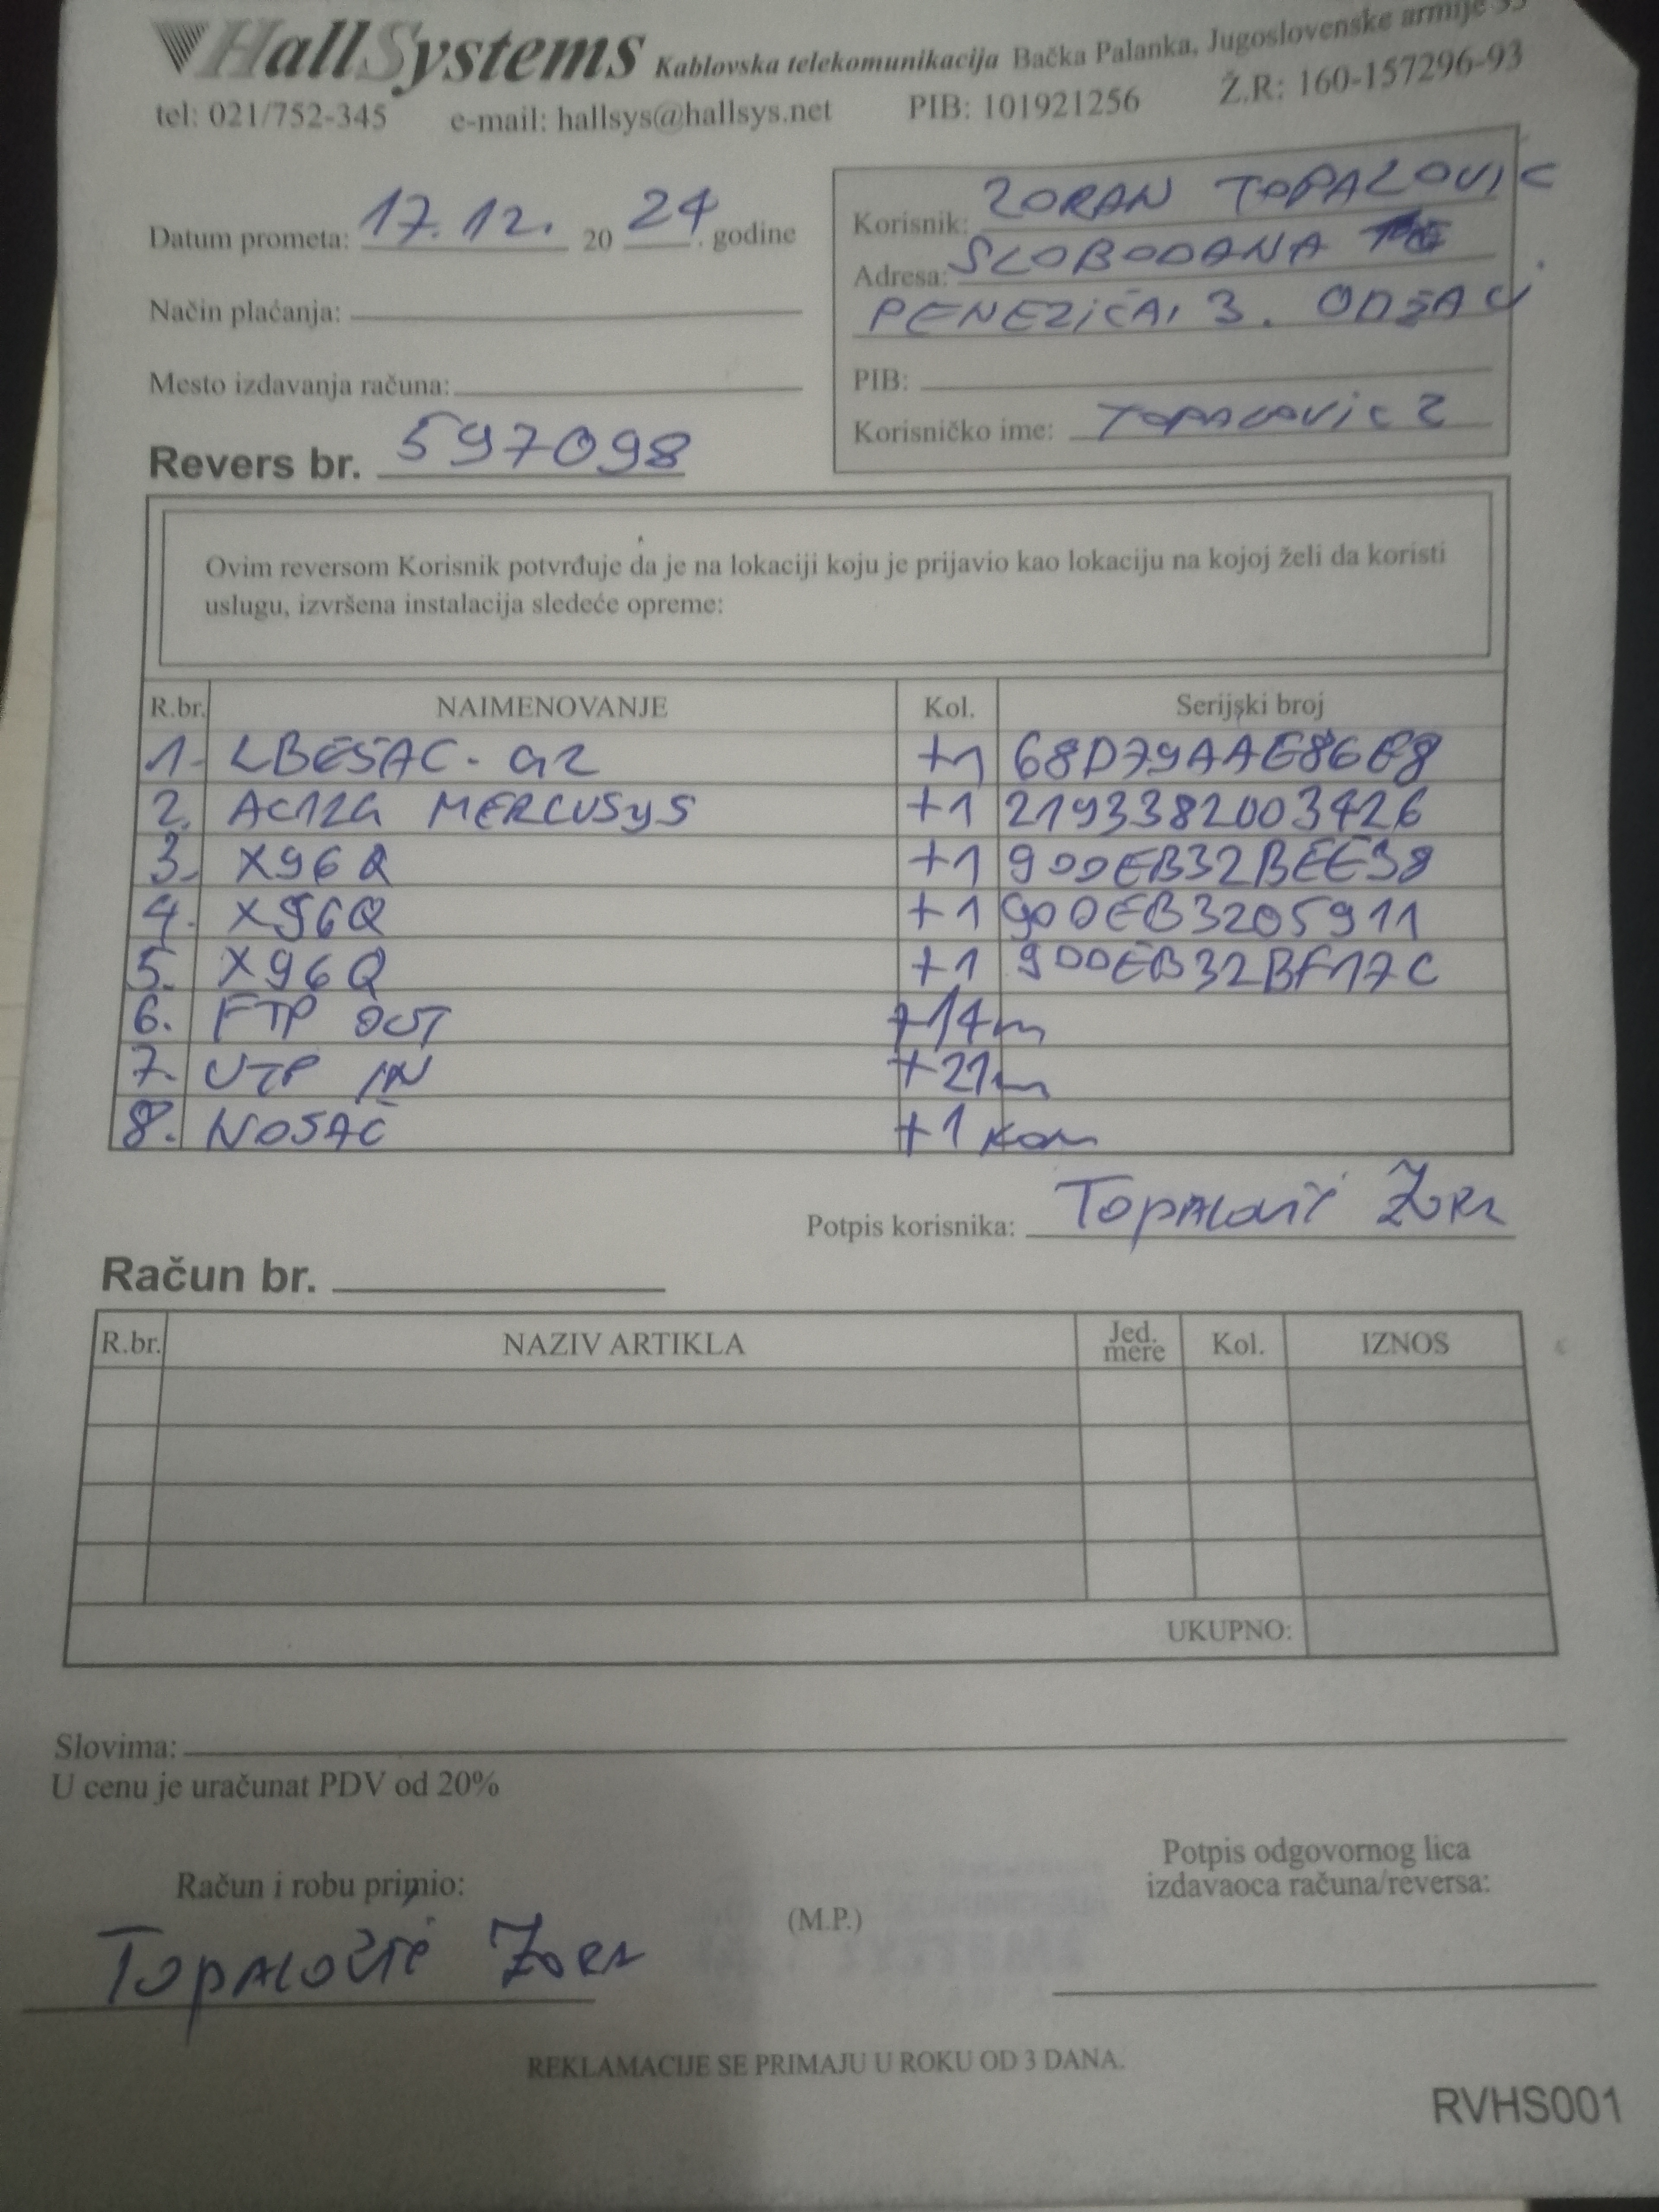 HallSystems Kablovska telekomunikacija Bačka Palanka, Jugoslovenske armije
tel: 021/752-345 e-mail: hallsys@hallsys.net PIB: 101921256 Ž.R: 160-157296-93
Datum prometa: 17.12. 20 24. godine
Način plaćanja:
Mesto izdavanja računa:
Revers br. 597098
Korisnik: ZORAN TOPALOVIC
Adresa: SLOBODANA
PENEZIĆA, 3. ODŽACI
PIB:
Korisničko ime: TOPALOVIC 2
Ovim reversom Korisnik potvrđuje da je na lokaciji koju je prijavio kao lokaciju na kojoj želi da koristi
uslugu, izvršena instalacija sledeće opreme:
R.br. NAIMENOVANJE Kol. Serijski broj
1. LBE5AC-G2 +1 68D79AAE86E8
2. AC12G MERCUSYS +1 2193382003426
3. X96Q +1 900EB32BEE38
4. X96Q +1 900EB3205911
5. X96Q +1 900EB32BF17C
6. FTP OUT +14m
7. UTP IN +21m
8. NOSAČ +1 kom
Potpis korisnika: Topalović
Račun br.
R.br. NAZIV ARTIKLA Jed. mere Kol. IZNOS
UKUPNO:
Slovima:
U cenu je uračunat PDV od 20%
Račun i robu primio:
Topalović
(M.P.)
Potpis odgovornog lica
izdavaoca računa/reversa:
REKLAMACIJE SE PRIMAJU U ROKU OD 3 DANA.
RVHS001